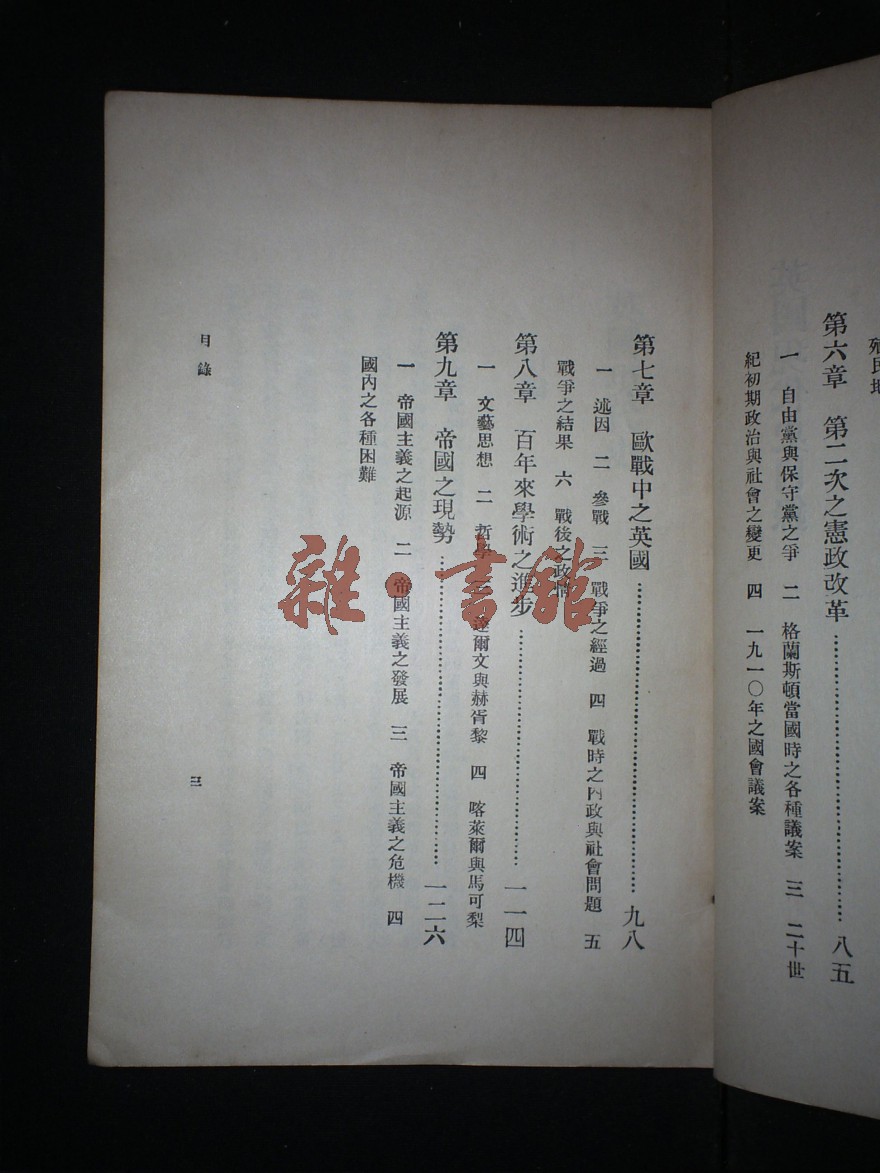 殖民地
第六章　第二次之憲政改革……………………………八五
一　自由黨與保守黨之爭　二　格蘭斯頓當國時之各種議案　三　二十世
紀初期政治與社會之變更　四　一九一〇年之國會議案
第七章　歐戰中之英國……………………………九八
一　述因　二　參戰　三　戰爭之經過　四　戰時之內政與社會問題　五
戰爭之結果　六　戰後之政情
第八章　百年來學術之進步……………………………一一四
一　文藝思想　二　哲學　三　達爾文與赫胥黎　四　喀萊爾與馬可梨
第九章　帝國之現勢……………………………一二六
一　帝國主義之起源　二　帝國主義之發展　三　帝國主義之危機　四
國內之各種困難
目錄
三
雜·書館